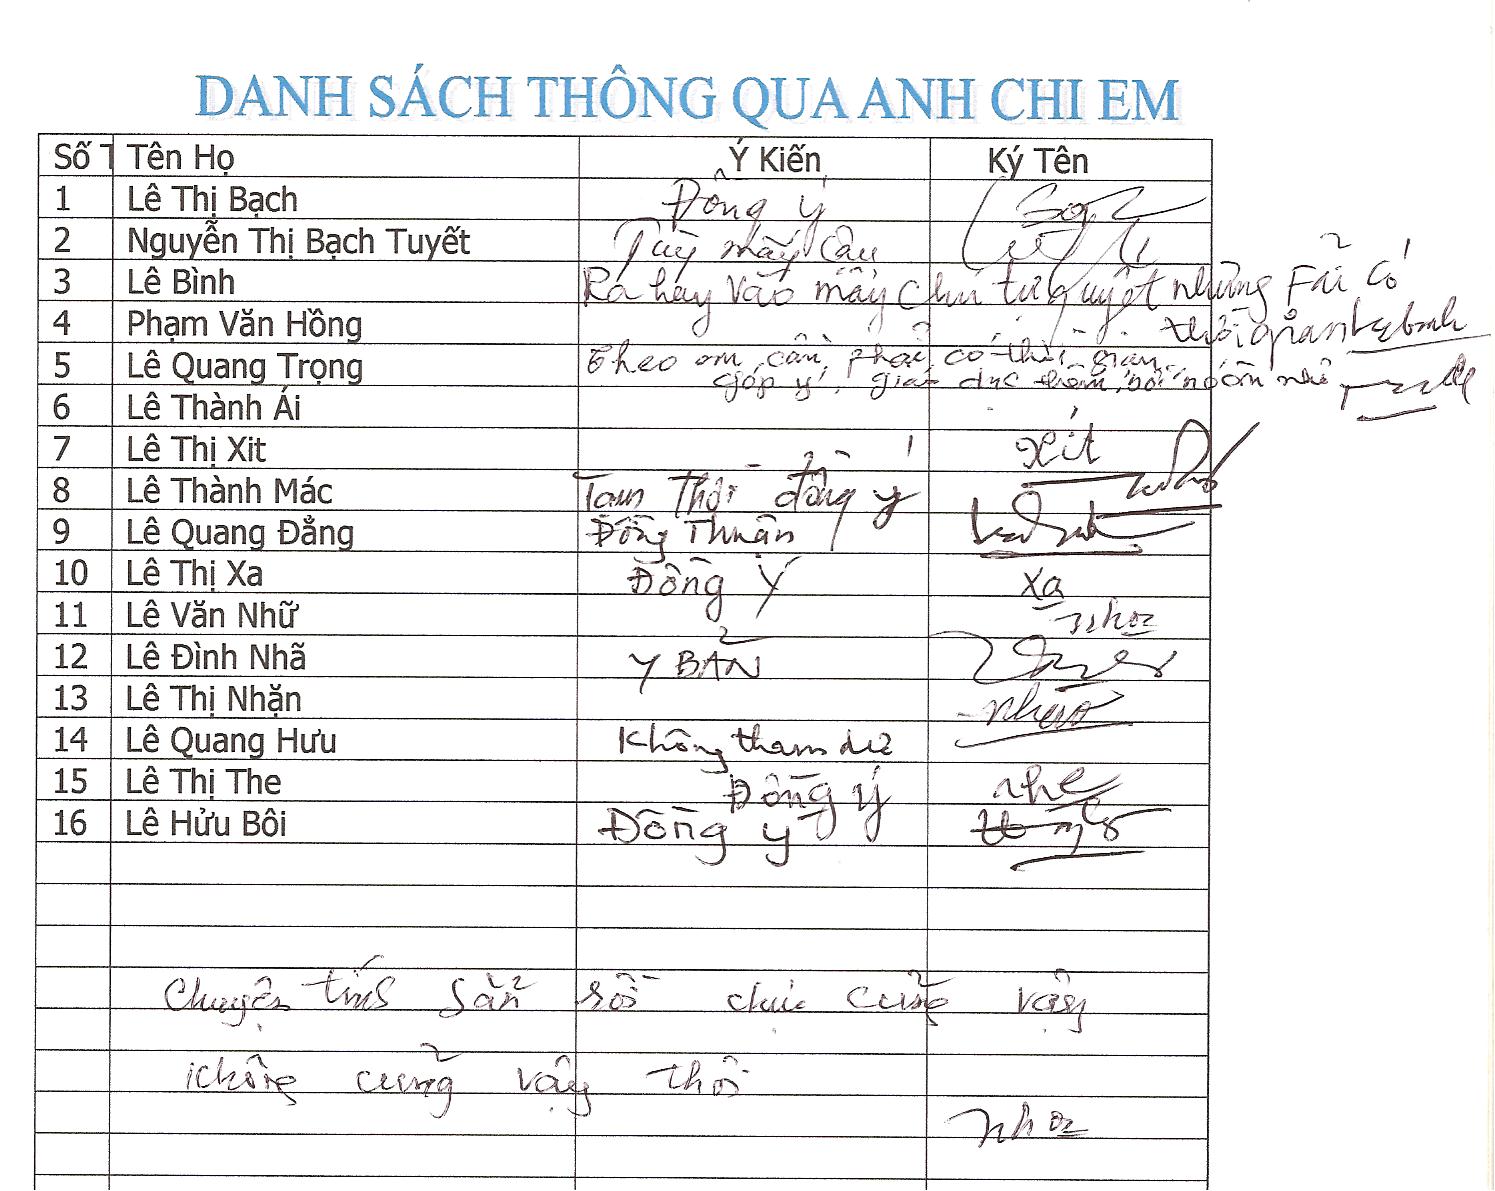 DANH SÁCH THÔNG QUA ANH CHI EM
Số T Tên Họ Ý Kiến Ký Tên
1 Lê Thị Bạch Đồng ý
2 Nguyễn Thị Bạch Tuyết Tuỳ mấy Cậu
3 Lê Bình Ra hay Vào mấy Chú tự quyết những Fải có
4 Phạm Văn Hồng thời gian
5 Lê Quang Trọng Theo em cần phải có thời gian
góp ý, giáo dục thêm,
6 Lê Thành Ái
7 Lê Thị Xit Xít
8 Lê Thành Mác Tạm Thời đồng ý
9 Lê Quang Đẳng Đồng Thuận
10 Lê Thị Xa Đồng Ý Xa
11 Lê Văn Nhữ
12 Lê Đình Nhã Y BẢN
13 Lê Thị Nhặn
14 Lê Quang Hưu Không tham dự
15 Lê Thị The Đồng ý
16 Lê Hửu Bôi Đồng ý
Chuyện tính sẵn rồi chịu cũng vậy
Không cũng vậy thôi